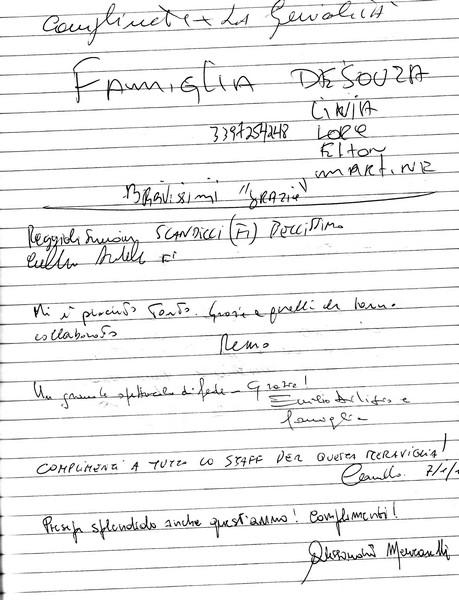 Complimenti x la Genialità
FAMIGLIA DESOUZA
LIVIA
3397254248 LORE
Elton
MARTINE
BRAVISSIMI "GRAZIE"
SCANDICCI (FI) BELLISSIMO
FI
Mi è piaciuto tanto. Grazie a quelli che hanno
collaborato
Remo
Un grande spettacolo di fede - Grazie!
Emilio e
famiglia
COMPLIMENTI A TUTTO LO STAFF PER QUESTA MERAVIGLIA!
Camilla 7/1/1
Presepe splendido anche quest'anno! Complimenti!
Alessandro